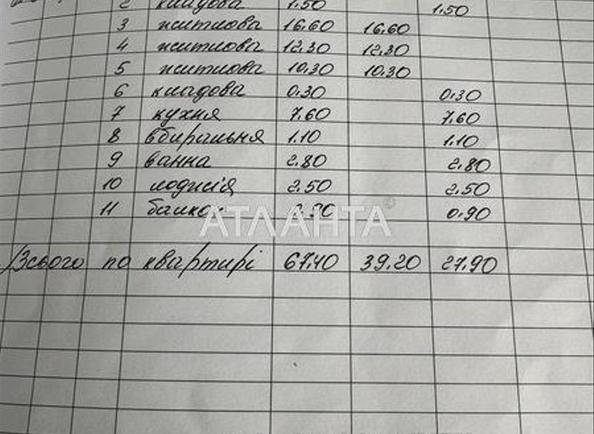 2 кладова 1.50 1.50
3 житлова 16.60 16.60
4 житлова 12.30 12.30
5 житлова 10.30 10.30
6 кладова 0.30 0.30
7 кухня 7.60 7.60
8 вбиральня 1.10 1.10
9 ванна 2.80 2.80
10 лоджія 2.50 2.50
11 0.90
АТЛАНТА
Всього по квартирі 67.40 39.20 27.90